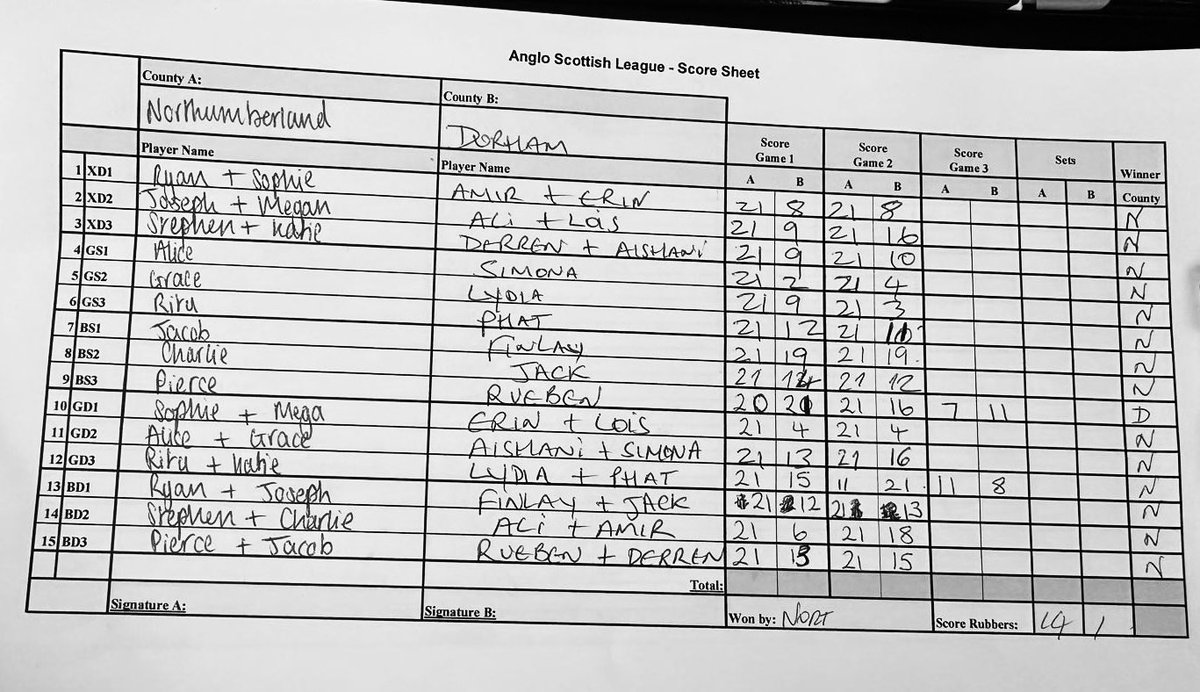 Anglo Scottish League - Score Sheet
County A: County B:
Northumberland DURHAM
Score Game 1 Score Game 2 Score Game 3 Sets Winner
Player Name Player Name A B A B A B A B County
1 XD1 Ryan + Sophie AMIR + ERIN 21 8 21 8 N
2 XD2 Joseph + Megan ALI + LOIS 21 9 21 16 N
3 XD3 Stephen + Katie DERREN + AISHANI 21 9 21 10 N
4 GS1 Alice SIMONA 21 2 21 4 N
5 GS2 Grace LYDIA 21 9 21 3 N
6 GS3 Ritu PHAT 21 12 21 N
7 BS1 Jacob FINLAY 21 19 21 19 N
8 BS2 Charlie JACK 21 21 12 N
9 BS3 Pierce RUEBEN 20 21 21 16 7 11 D
10 GD1 Sophie + Mega ERIN + LOIS 21 4 21 4 N
11 GD2 Alice + Grace AISHANI + SIMONA 21 13 21 16 N
12 GD3 Ritu + Katie LYDIA + PHAT 21 15 11 21 11 8 N
13 BD1 Ryan + Joseph FINLAY + JACK 21 12 21 13 N
14 BD2 Stephen + Charlie ALI + AMIR 21 6 21 18 N
15 BD3 Pierce + Jacob RUEBEN + DERREN 21 13 21 15 N
Total:
Signature A: Signature B: Won by: NORT Score Rubbers: 14 1